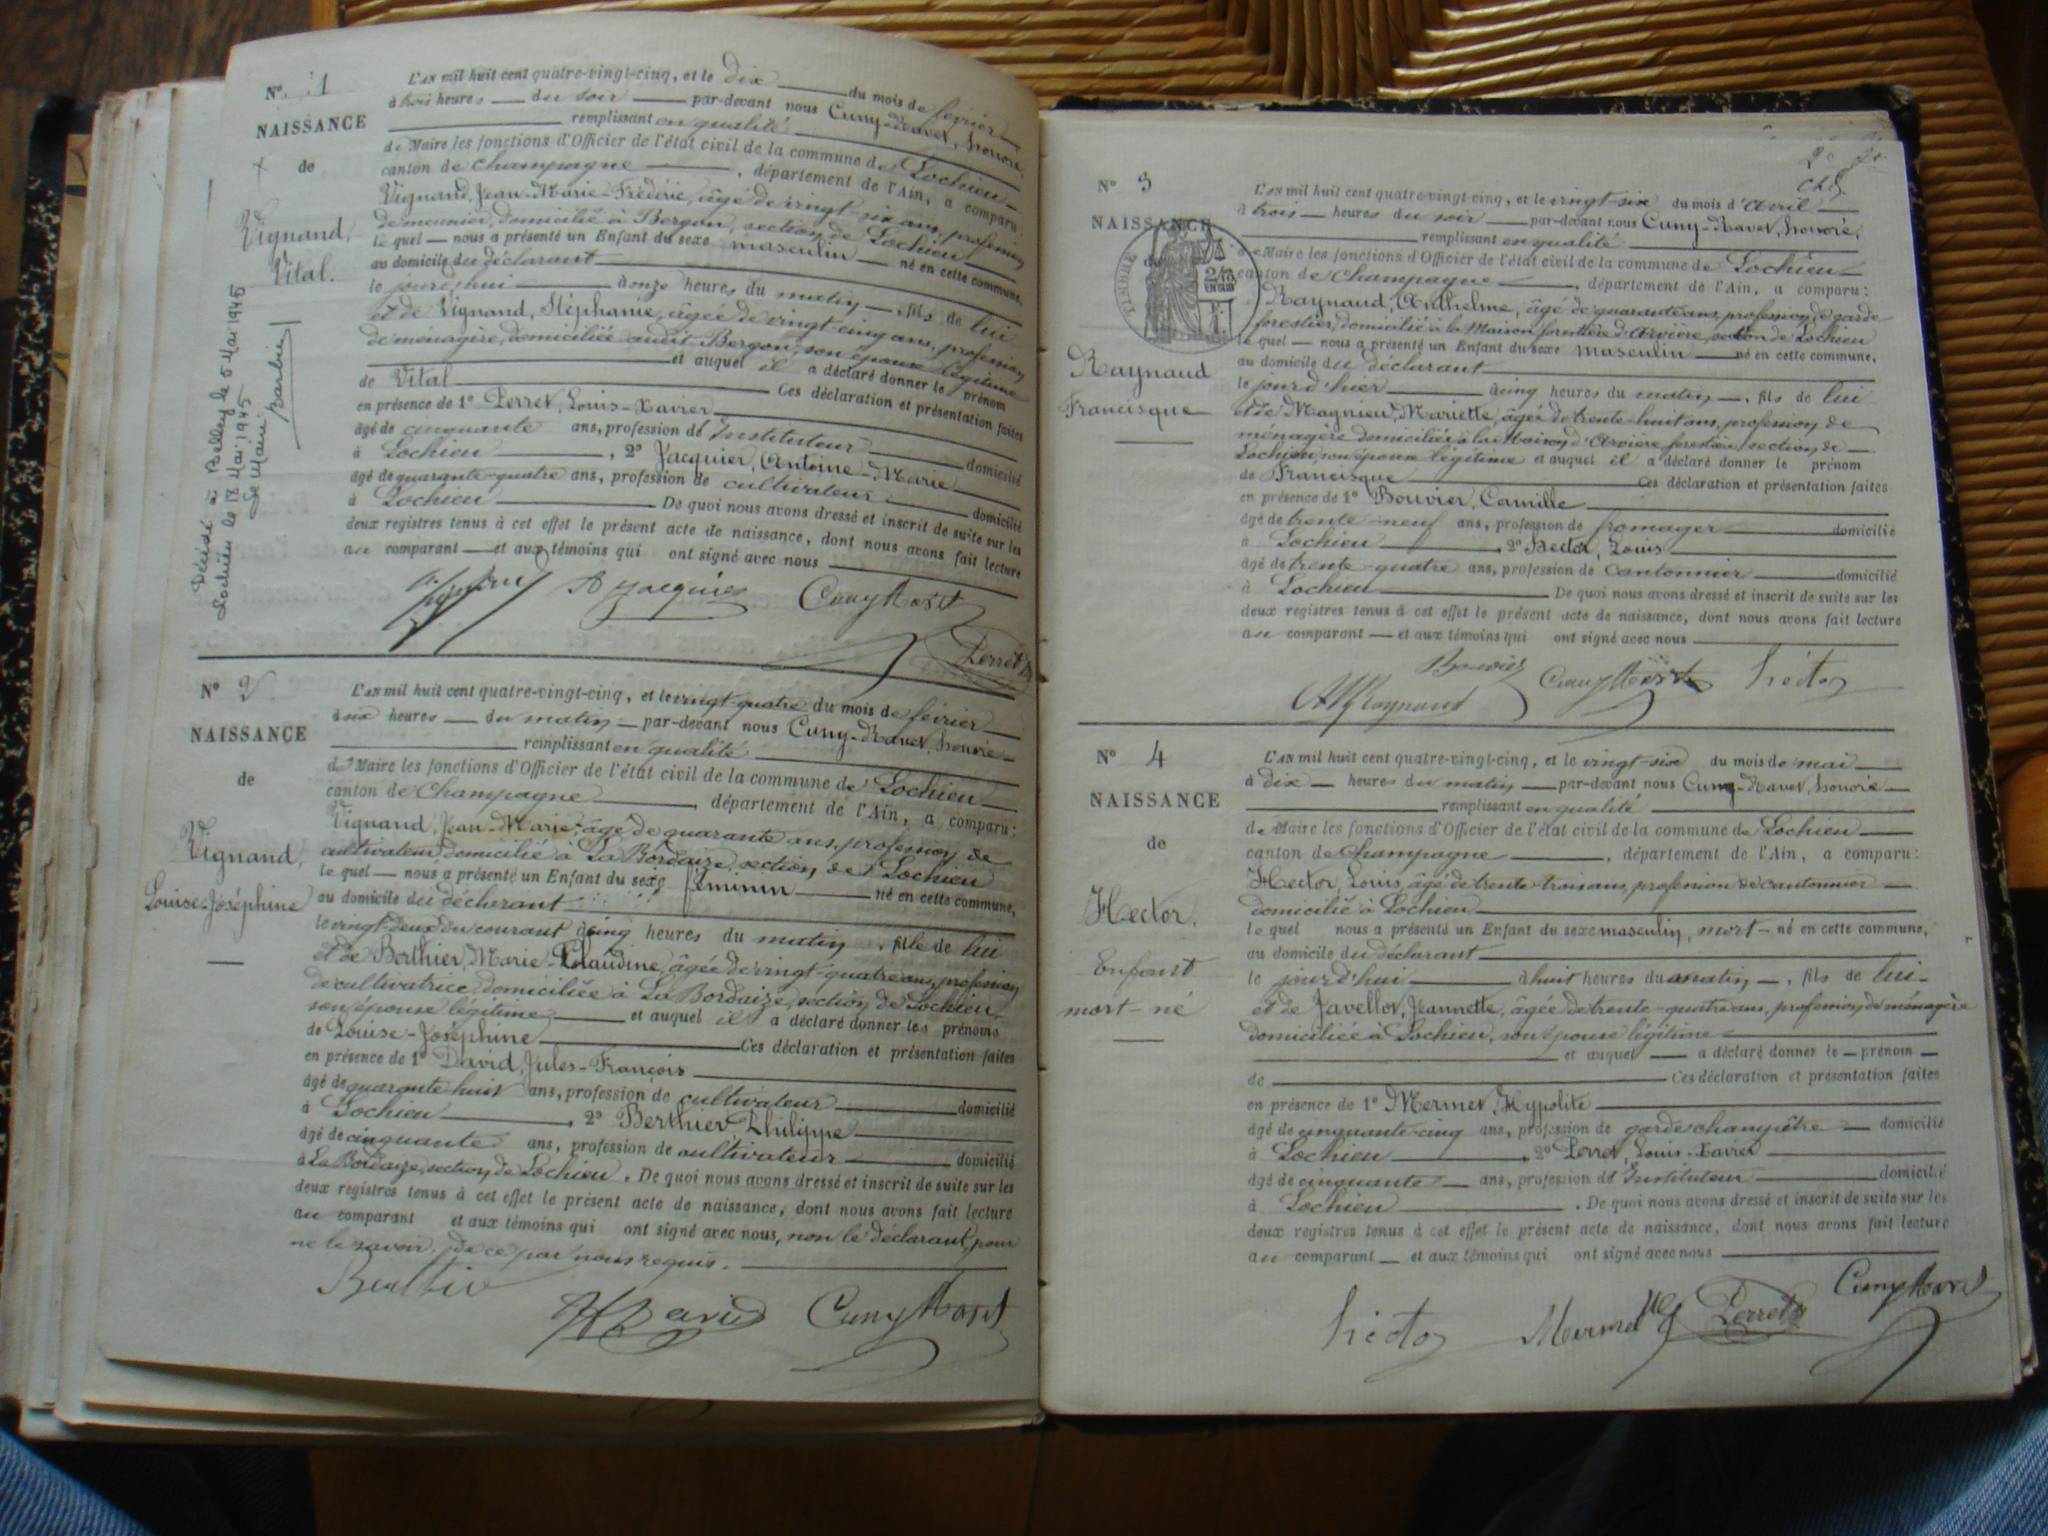 N° 1
NAISSANCE
de
Vignand,
Vital.
Décédé à Belley le 5 Mai 1945
Lochieu le 17 Mai 1945
Le Maire
L'AN mil huit cent quatre-vingt-cinq, et le dix du mois de février
à trois heures du soir par-devant nous Cuny-Ravet, honoré,
remplissant en qualité
de Maire les fonctions d'Officier de l'état civil de la commune de Lochieu
canton de Champagne, département de l'Ain, a comparu:
Vignand, Jean-Marie-Frédéric, âgé de vingt-six ans, profession
de meunier, domicilié à Bergon, section de Lochieu
le quel nous a présenté un Enfant du sexe masculin né en cette commune,
au domicile du déclarant
le jourd'hui à onze heures du matin, fils de lui
et de Vignand, Stéphanie, âgée de vingt-cinq ans, profession
de ménagère, domiciliée audit Bergon, son épouse légitime
et auquel il a déclaré donner le prénom
de Vital Ces déclaration et présentation faites
en présence de 1° Perret, Louis-Xavier
âgé de cinquante ans, profession d'Instituteur domicilié
à Lochieu, 2° Jacquier, Antoine-Marie
âgé de quarante-quatre ans, profession de cultivateur domicilié
à Lochieu De quoi nous avons dressé et inscrit de suite sur les
deux registres tenus à cet effet le présent acte de naissance, dont nous avons fait lecture
au comparant et aux témoins qui ont signé avec nous
Jacquier Cuny Ravet
Perret
N° 2
NAISSANCE
de
Vignand,
Louise-Joséphine
L'AN mil huit cent quatre-vingt-cinq, et le vingt-quatre du mois de février
à six heures du matin par-devant nous Cuny-Ravet, honoré
remplissant en qualité
de Maire les fonctions d'Officier de l'état civil de la commune de Lochieu
canton de Champagne, département de l'Ain, a comparu:
Vignand, Jean-Marie, âgé de quarante ans, profession de
cultivateur, domicilié à La Bordaize, section de Lochieu
le quel nous a présenté un Enfant du sexe féminin né en cette commune,
au domicile du déclarant
le vingt-deux du courant à cinq heures du matin, fille de lui
et de Berthier, Marie-Claudine, âgée de vingt-quatre ans, profession
de cultivatrice, domiciliée à La Bordaize, section de Lochieu,
son épouse légitime et auquel il a déclaré donner les prénoms
de Louise-Joséphine Ces déclaration et présentation faites
en présence de 1° David, Jules-François
âgé de quarante huit ans, profession de cultivateur domicilié
à Lochieu, 2° Berthier Philippe
âgé de cinquante ans, profession de cultivateur domicilié
à La Bordaize, section de Lochieu. De quoi nous avons dressé et inscrit de suite sur les
deux registres tenus à cet effet le présent acte de naissance, dont nous avons fait lecture
au comparant et aux témoins qui ont signé avec nous, non le déclarant, pour
ne le savoir, de ce par nous requis.
David Cuny Ravet
N° 3
NAISSANCE
de
Raynaud
Francisque
TIMBRE
L'AN mil huit cent quatre-vingt-cinq, et le vingt-six du mois d'Avril
à trois heures du soir par-devant nous Cuny-Ravet, honoré,
remplissant en qualité
de Maire les fonctions d'Officier de l'état civil de la commune de Lochieu
canton de Champagne, département de l'Ain, a comparu:
Raynaud, Anthelme, âgé de quarante ans, profession de garde
forestier, domicilié à la Maison forestière d'Arvière, section de Lochieu
le quel nous a présenté un Enfant du sexe masculin né en cette commune,
au domicile du déclarant
le jour d'hier à cinq heures du matin, fils de lui
et de Magnieu, Mariette, âgée de trente-huit ans, profession de
ménagère domiciliée à la Maison d'Arvière forestière, section de
Lochieu, son épouse légitime et auquel il a déclaré donner le prénom
de Francisque Ces déclaration et présentation faites
en présence de 1° Bouvier, Camille
âgé de trente-neuf ans, profession de fromager domicilié
à Lochieu, 2° Hector, Louis
âgé de trente-quatre ans, profession de cantonnier domicilié
à Lochieu De quoi nous avons dressé et inscrit de suite sur les
deux registres tenus à cet effet le présent acte de naissance, dont nous avons fait lecture
au comparant et aux témoins qui ont signé avec nous
Bouvier Cuny Ravet hector
Raynaud
N° 4
NAISSANCE
de
Hector,
Enfant
mort-né
L'AN mil huit cent quatre-vingt-cinq, et le vingt-six du mois de mai
à dix heures du matin par-devant nous Cuny-Ravet, honoré
remplissant en qualité
de Maire les fonctions d'Officier de l'état civil de la commune de Lochieu
canton de Champagne, département de l'Ain, a comparu:
Hector, Louis, âgé de trente-trois ans, profession de cantonnier
domicilié à Lochieu
le quel nous a présenté un Enfant du sexe masculin, mort-né en cette commune,
au domicile du déclarant
le jourd'hui à huit heures du matin, fils de lui
et de Javellot, Jeannette, âgée de trente-quatre ans, profession de ménagère
domiciliée à Lochieu, son épouse légitime
et auquel a déclaré donner le prénom
de Ces déclaration et présentation faites
en présence de 1° Mermet, Hypolite
âgé de cinquante-cinq ans, profession de garde champêtre domicilié
à Lochieu, 2° Perret, Louis-Xavier
âgé de cinquante ans, profession d'Instituteur domicilié
à Lochieu. De quoi nous avons dressé et inscrit de suite sur les
deux registres tenus à cet effet le présent acte de naissance, dont nous avons fait lecture
au comparant et aux témoins qui ont signé avec nous
hector Mermet Perret Cuny Ravet